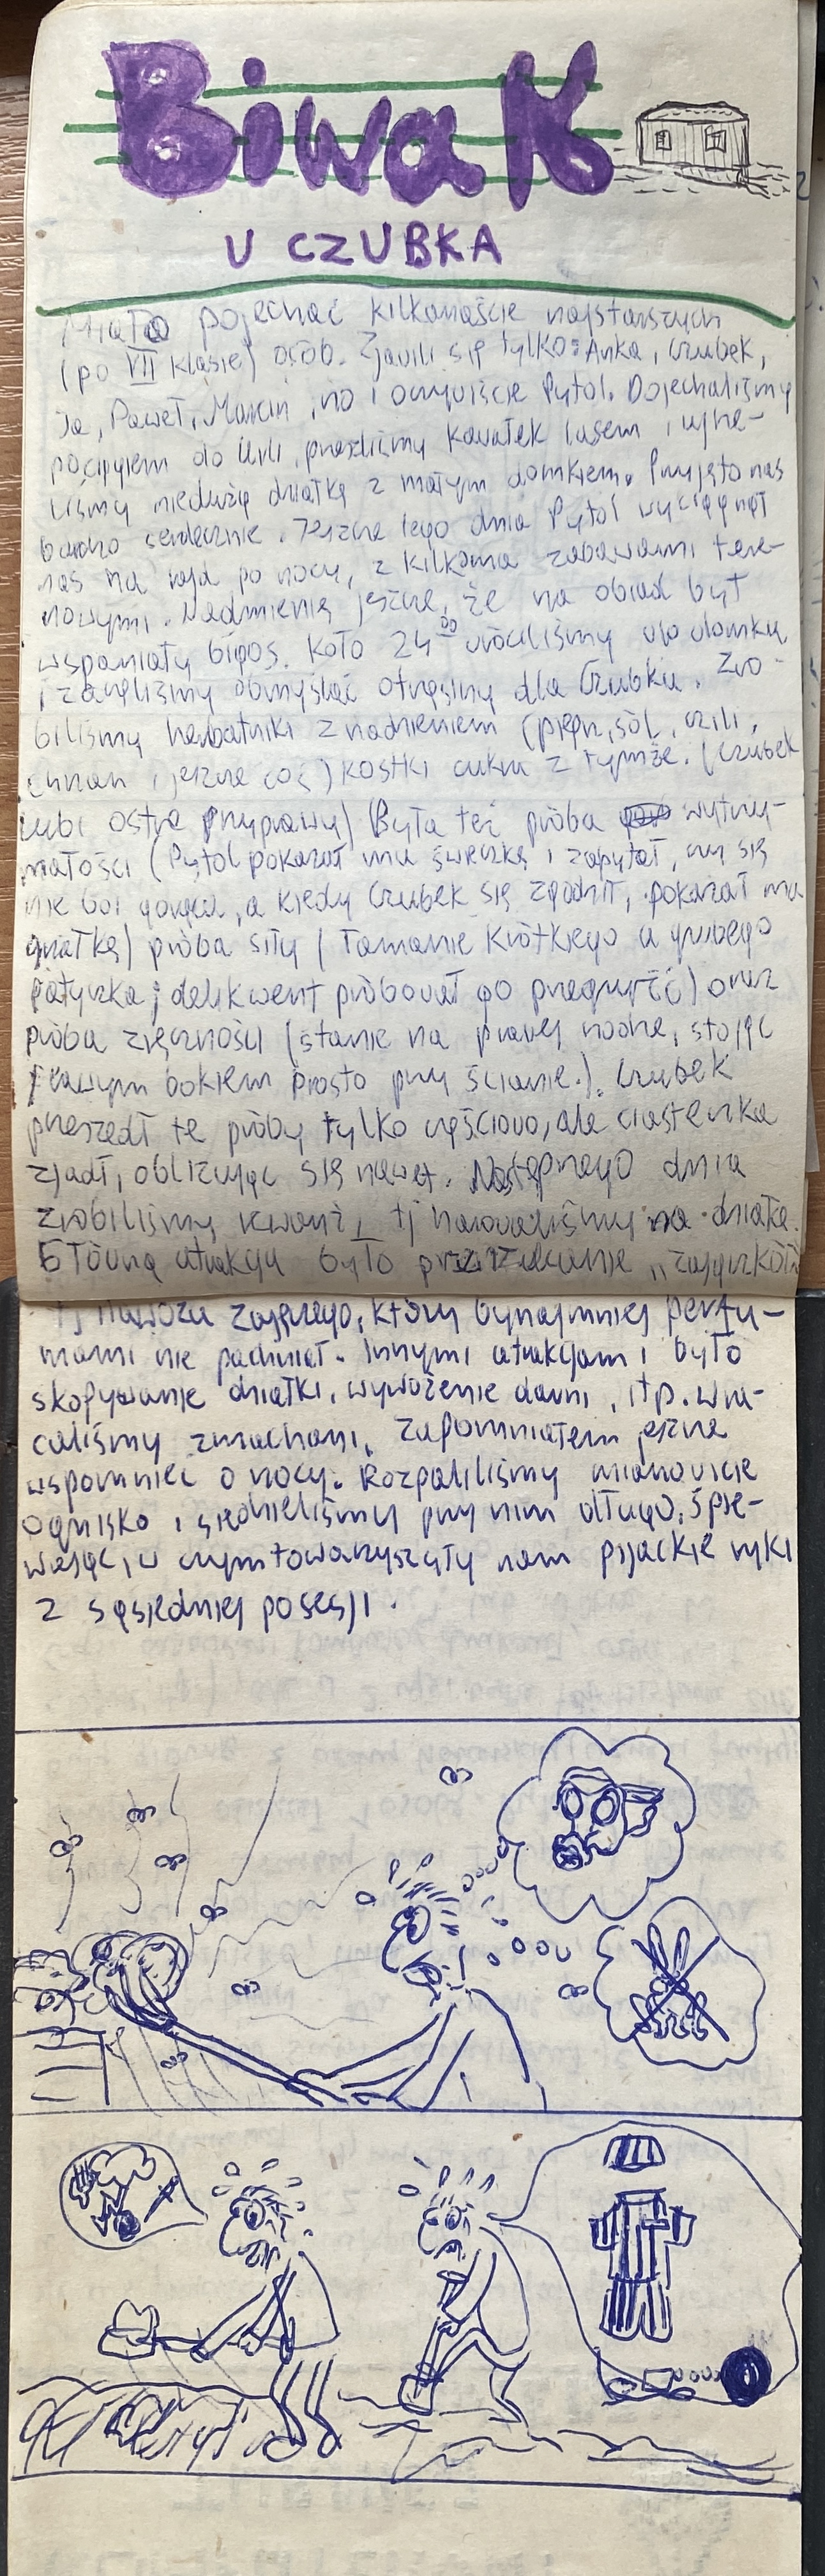 Biwak
U CZUBKA
Miało pojechać kilkanaście najstarszych
(po VII klasie) osób. Zjawili się tylko: Anka, Czubek,
Ja, Paweł, Marcin, no i oczywiście Pytol. Dojechaliśmy
pociągiem do Urli, przeszliśmy kawałek lasem i ujrze-
liśmy niedużą działkę z małym domkiem. Przyjęto nas
bardzo serdecznie. Jeszcze tego dnia Pytol wyciągnął
nas na rajd po nocy, z kilkoma zabawami tere-
nowymi. Nadmienię jeszcze, że na obiad był
wspaniały bigos. Koło 24⁰⁰ wróciliśmy do domku
i zaczęliśmy obmyślać otrzęsiny dla Czubka. Zro-
biliśmy herbatniki z nadzieniem (pieprz, sól, czili,
chrzan i jeszcze coś) kostki cukru z tymże. (Czubek
lubi ostre przyprawy) Była też próba wytrzy-
małości (Pytol pokazał mu świeczkę i zapytał, czy się
nie boi gorąca, a kiedy Czubek się zgodził, pokazał mu
) próba siły (łamanie krótkiego a grubego
patyczka; delikwent próbował go przegryźć) oraz
próba zręczności (stanie na prawej nodze, stojąc
prawym bokiem prosto przy ścianie.). Czubek
przeszedł te próby tylko częściowo, ale ciasteczka
zjadł, oblizując się nawet. Następnego dnia
zrobiliśmy kwant, tj harowaliśmy na działce.
Główną atrakcją było przerzucanie „zajączków”
tj nawozu zajęczego, który bynajmniej perfu-
mami nie pachniał. Innymi atrakcjami było
skopywanie działki, wywożenie darni, itp. Wra-
caliśmy zmachani. Zapomniałem jeszcze
wspomnieć o nocy. Rozpaliliśmy mianowicie
ognisko i siedzieliśmy przy nim długo, śpie-
wając, w czym towarzyszyły nam pijackie ryki
z sąsiedniej posesji.